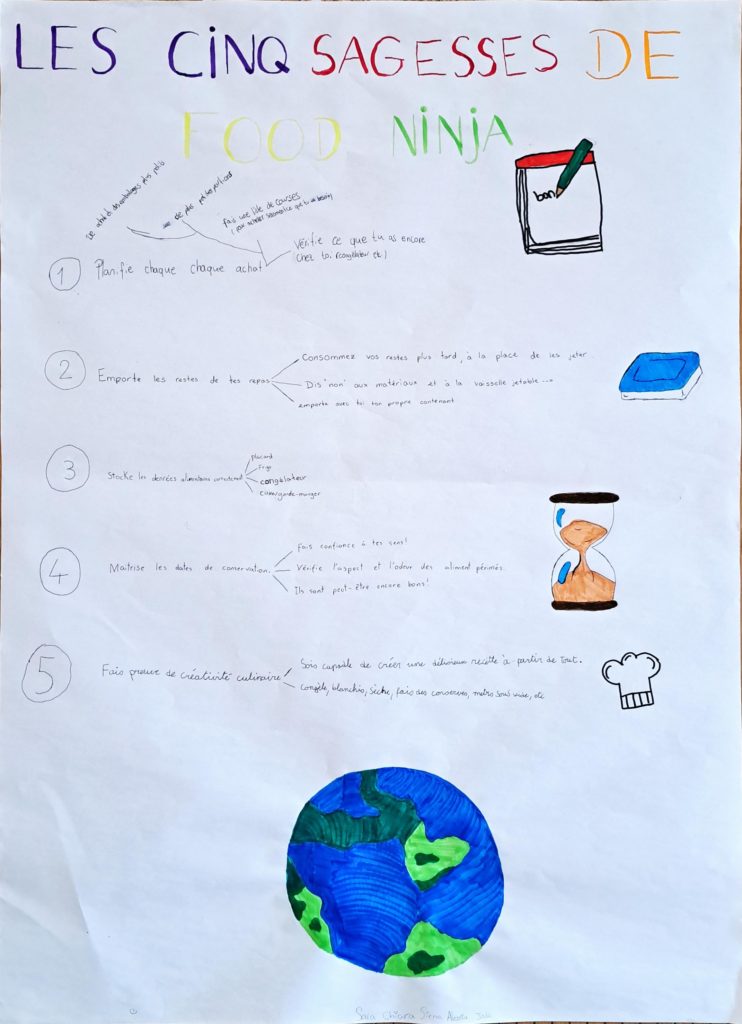 LES CINQ SAGESSES DE
FOOD NINJA
bon
achat des emballages plus petits
de plus petites portions
fais une liste de courses
(pour acheter que tu besoin)
Vérifie ce que tu as encore
chez toi (congélateur etc)
1 Planifie chaque chaque achat
2 Emporte les restes de tes repas
Consommez vos restes plus tard, à la place de les jeter.
Dis 'non' aux matériaux et à la vaisselle jetable -->
emporte avec toi ton propre contenant
3 Stocke les denrées alimentaires correctement
placard
Frigo
congélateur
garde-manger
4 Maîtrise les dates de conservation.
Fais confiance à tes sens!
Vérifie l'aspect et l'odeur des aliment périmés.
Ils sont peut-être encore bons!
5 Fais preuve de créativité culinaire
Sois capable de créer une délicieux recette à partir de tout.
Congèle, blanchis, sèche, fais des conserves, mets sous vide, etc
Sara Chiara Siena